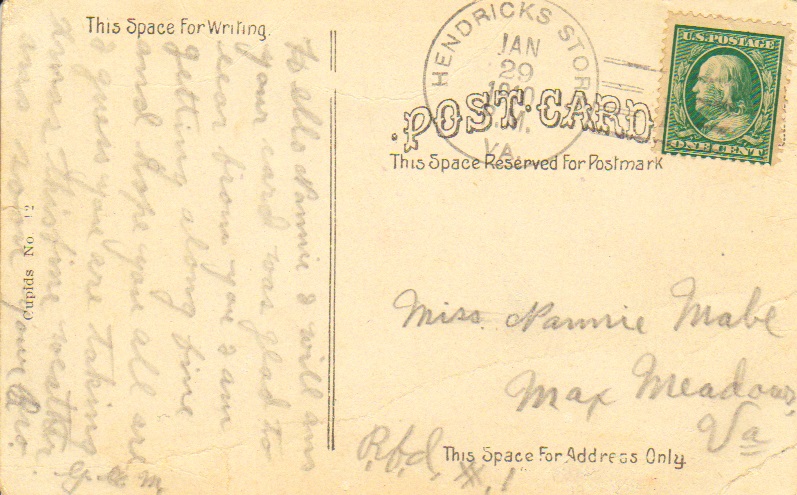 This Space For Writing.
HENDRICKS STORE
JAN
29
1910
P.M.
VA.
U.S. POSTAGE
ONE CENT
POST CARD
This Space Reserved For Postmark
Cupids No. 12
to ello Nannie I will ans
your card was glad to
ear from you I am
getting along fine
and hope you all are
I guess you are taking
this fine weather
ans soon your Bro.
Miss. Nannie Mabe
Max Meadows,
Va
R.f.d, #, 1
This Space For Address Only